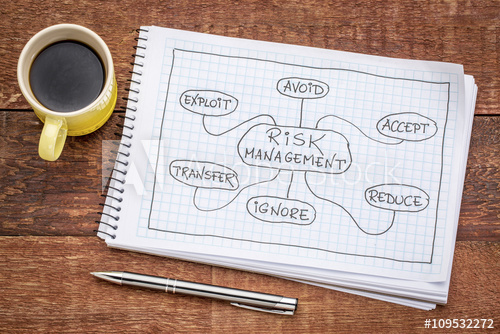 AVOID
EXPLOIT
ACCEPT
RISK
MANAGEMENT
TRANSFER
REDUCE
IGNORE
#109532272